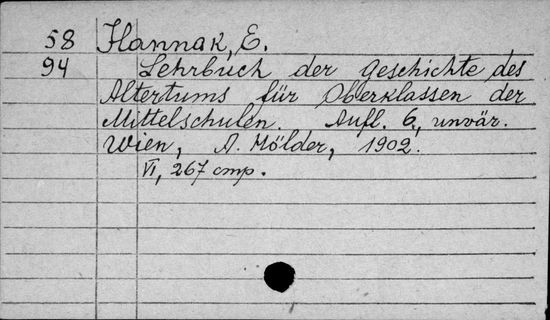 58 Hannak, E.
94 Lehrbuch der Geschichte des
Altertums für Oberklassen der
Mittelschulen. Aufl. 6., unvär.
Wien, A. Hölder, 1902.
VI, 267 стр.